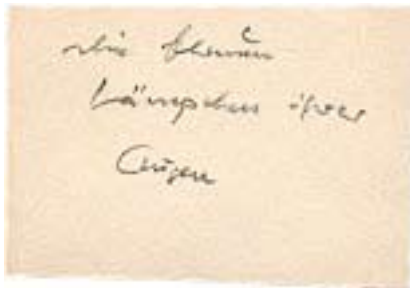 die blauen
Lämpchen ihrer
Augen